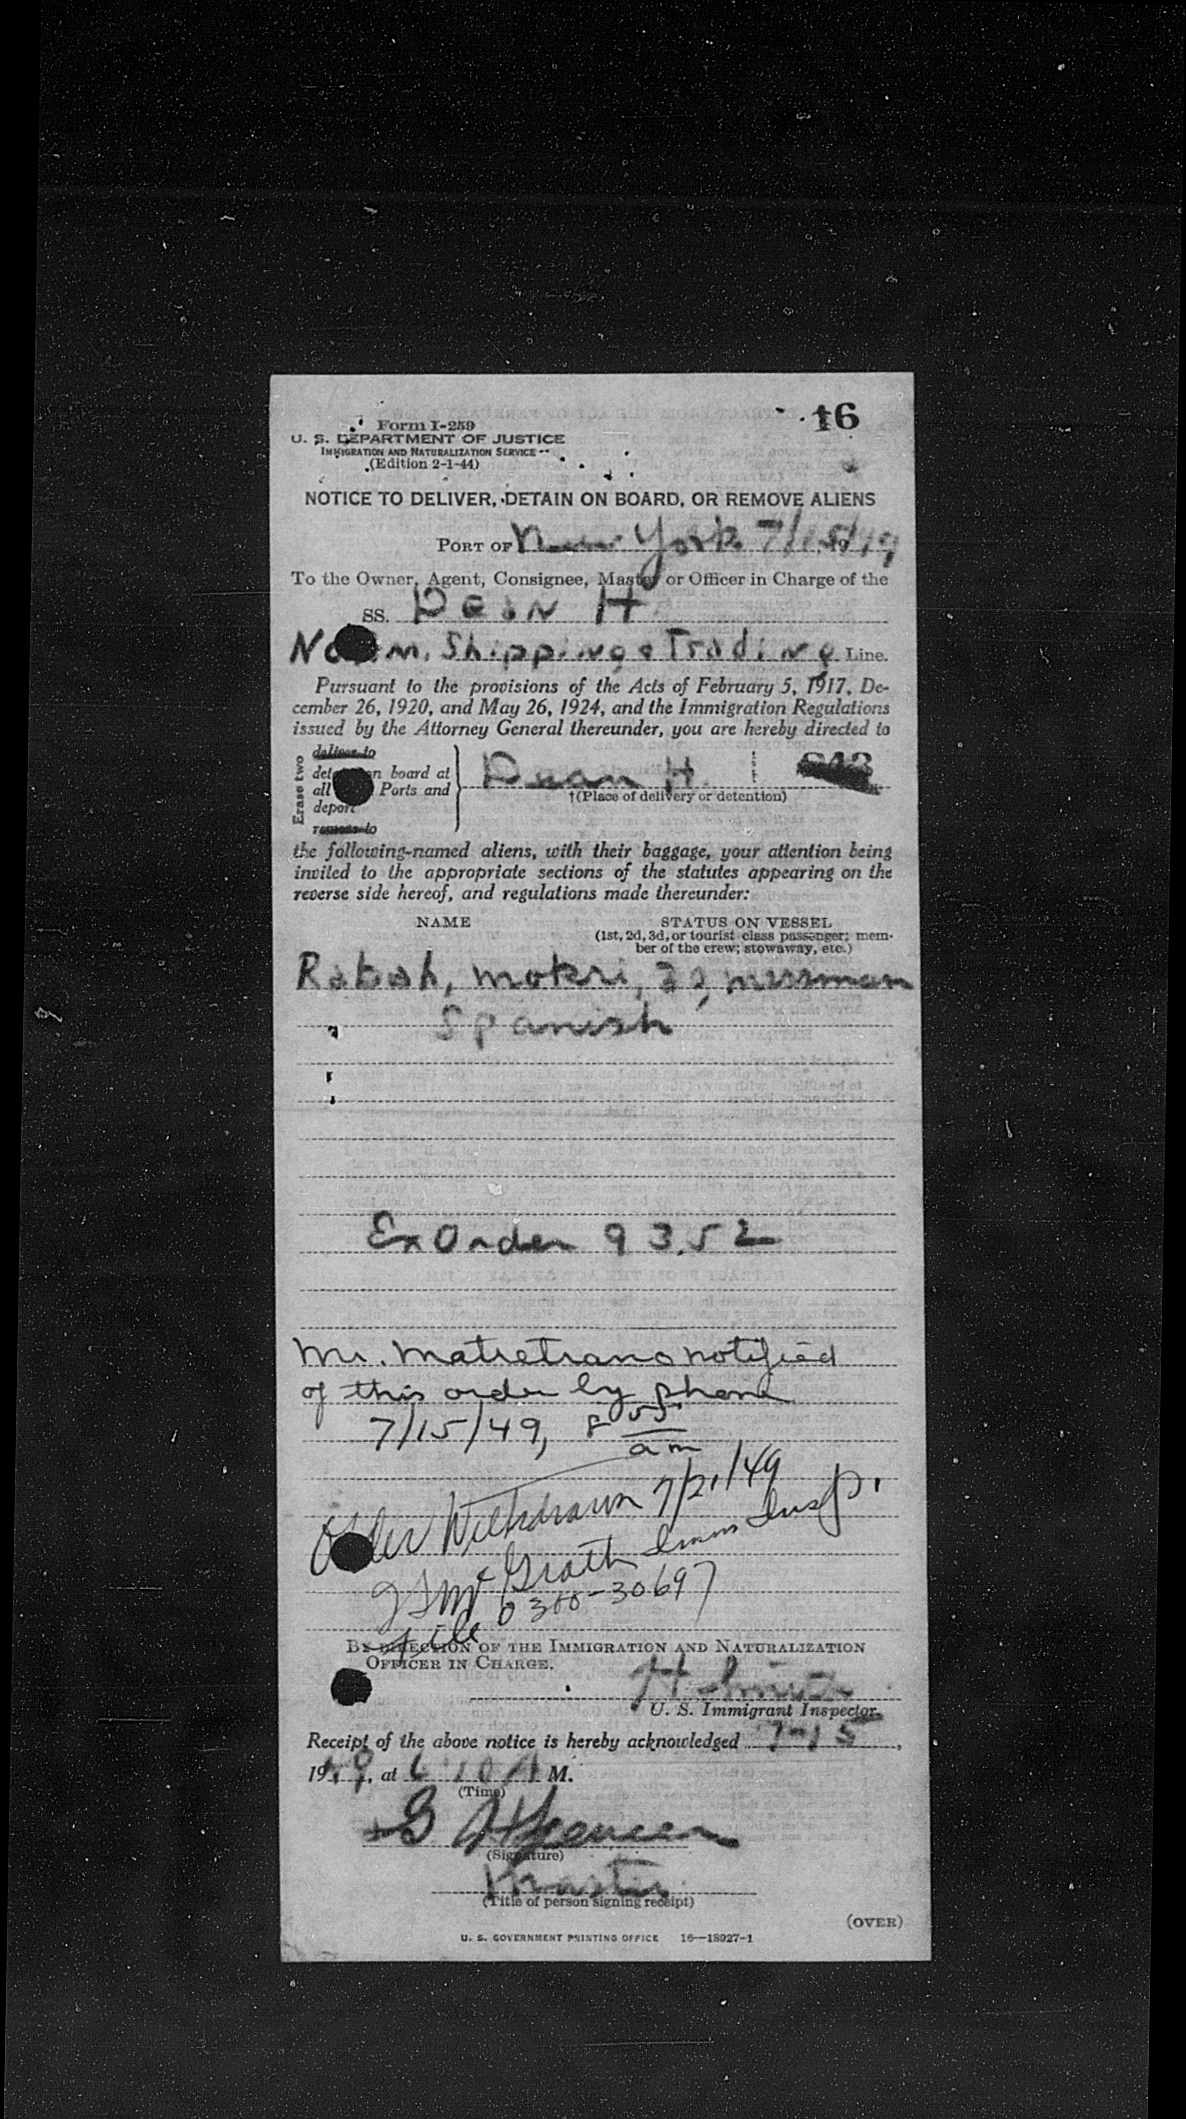 16
Form I-259
U. S. DEPARTMENT OF JUSTICE
IMMIGRATION AND NATURALIZATION SERVICE
(Edition 2-1-44)
NOTICE TO DELIVER, DETAIN ON BOARD, OR REMOVE ALIENS
PORT OF New York 7/15/49
To the Owner, Agent, Consignee, Master or Officer in Charge of the
SS. Dean H
Norm. Shipping & Trading Line.
Pursuant to the provisions of the Acts of February 5, 1917, De-
cember 26, 1920, and May 26, 1924, and the Immigration Regulations
issued by the Attorney General thereunder, you are hereby directed to
Erase two
deliver to
detain on board at
all Ports and
deport
remove to
Dean H.
†(Place of delivery or detention)
the following-named aliens, with their baggage, your attention being
invited to the appropriate sections of the statutes appearing on the
reverse side hereof, and regulations made thereunder:
NAME STATUS ON VESSEL
(1st, 2d, 3d, or tourist class passenger; mem-
ber of the crew; stowaway, etc.)
Rabah, Mokri, messman
Spanish
Ex Order 9352
Mr. Matretrano notified
of this order by phone
7/15/49, 8 05
am
Order Withdrawn 7/21/49
McGrath Imm Insp.
File 0300-30697
BY DIRECTION OF THE IMMIGRATION AND NATURALIZATION
OFFICER IN CHARGE.
H Smith
U. S. Immigrant Inspector.
Receipt of the above notice is hereby acknowledged 7-15,
1949, at 6:10 A M.
(Time)
Spencer
(Signature)
Master
(Title of person signing receipt)
(OVER)
U. S. GOVERNMENT PRINTING OFFICE 16—18927-1